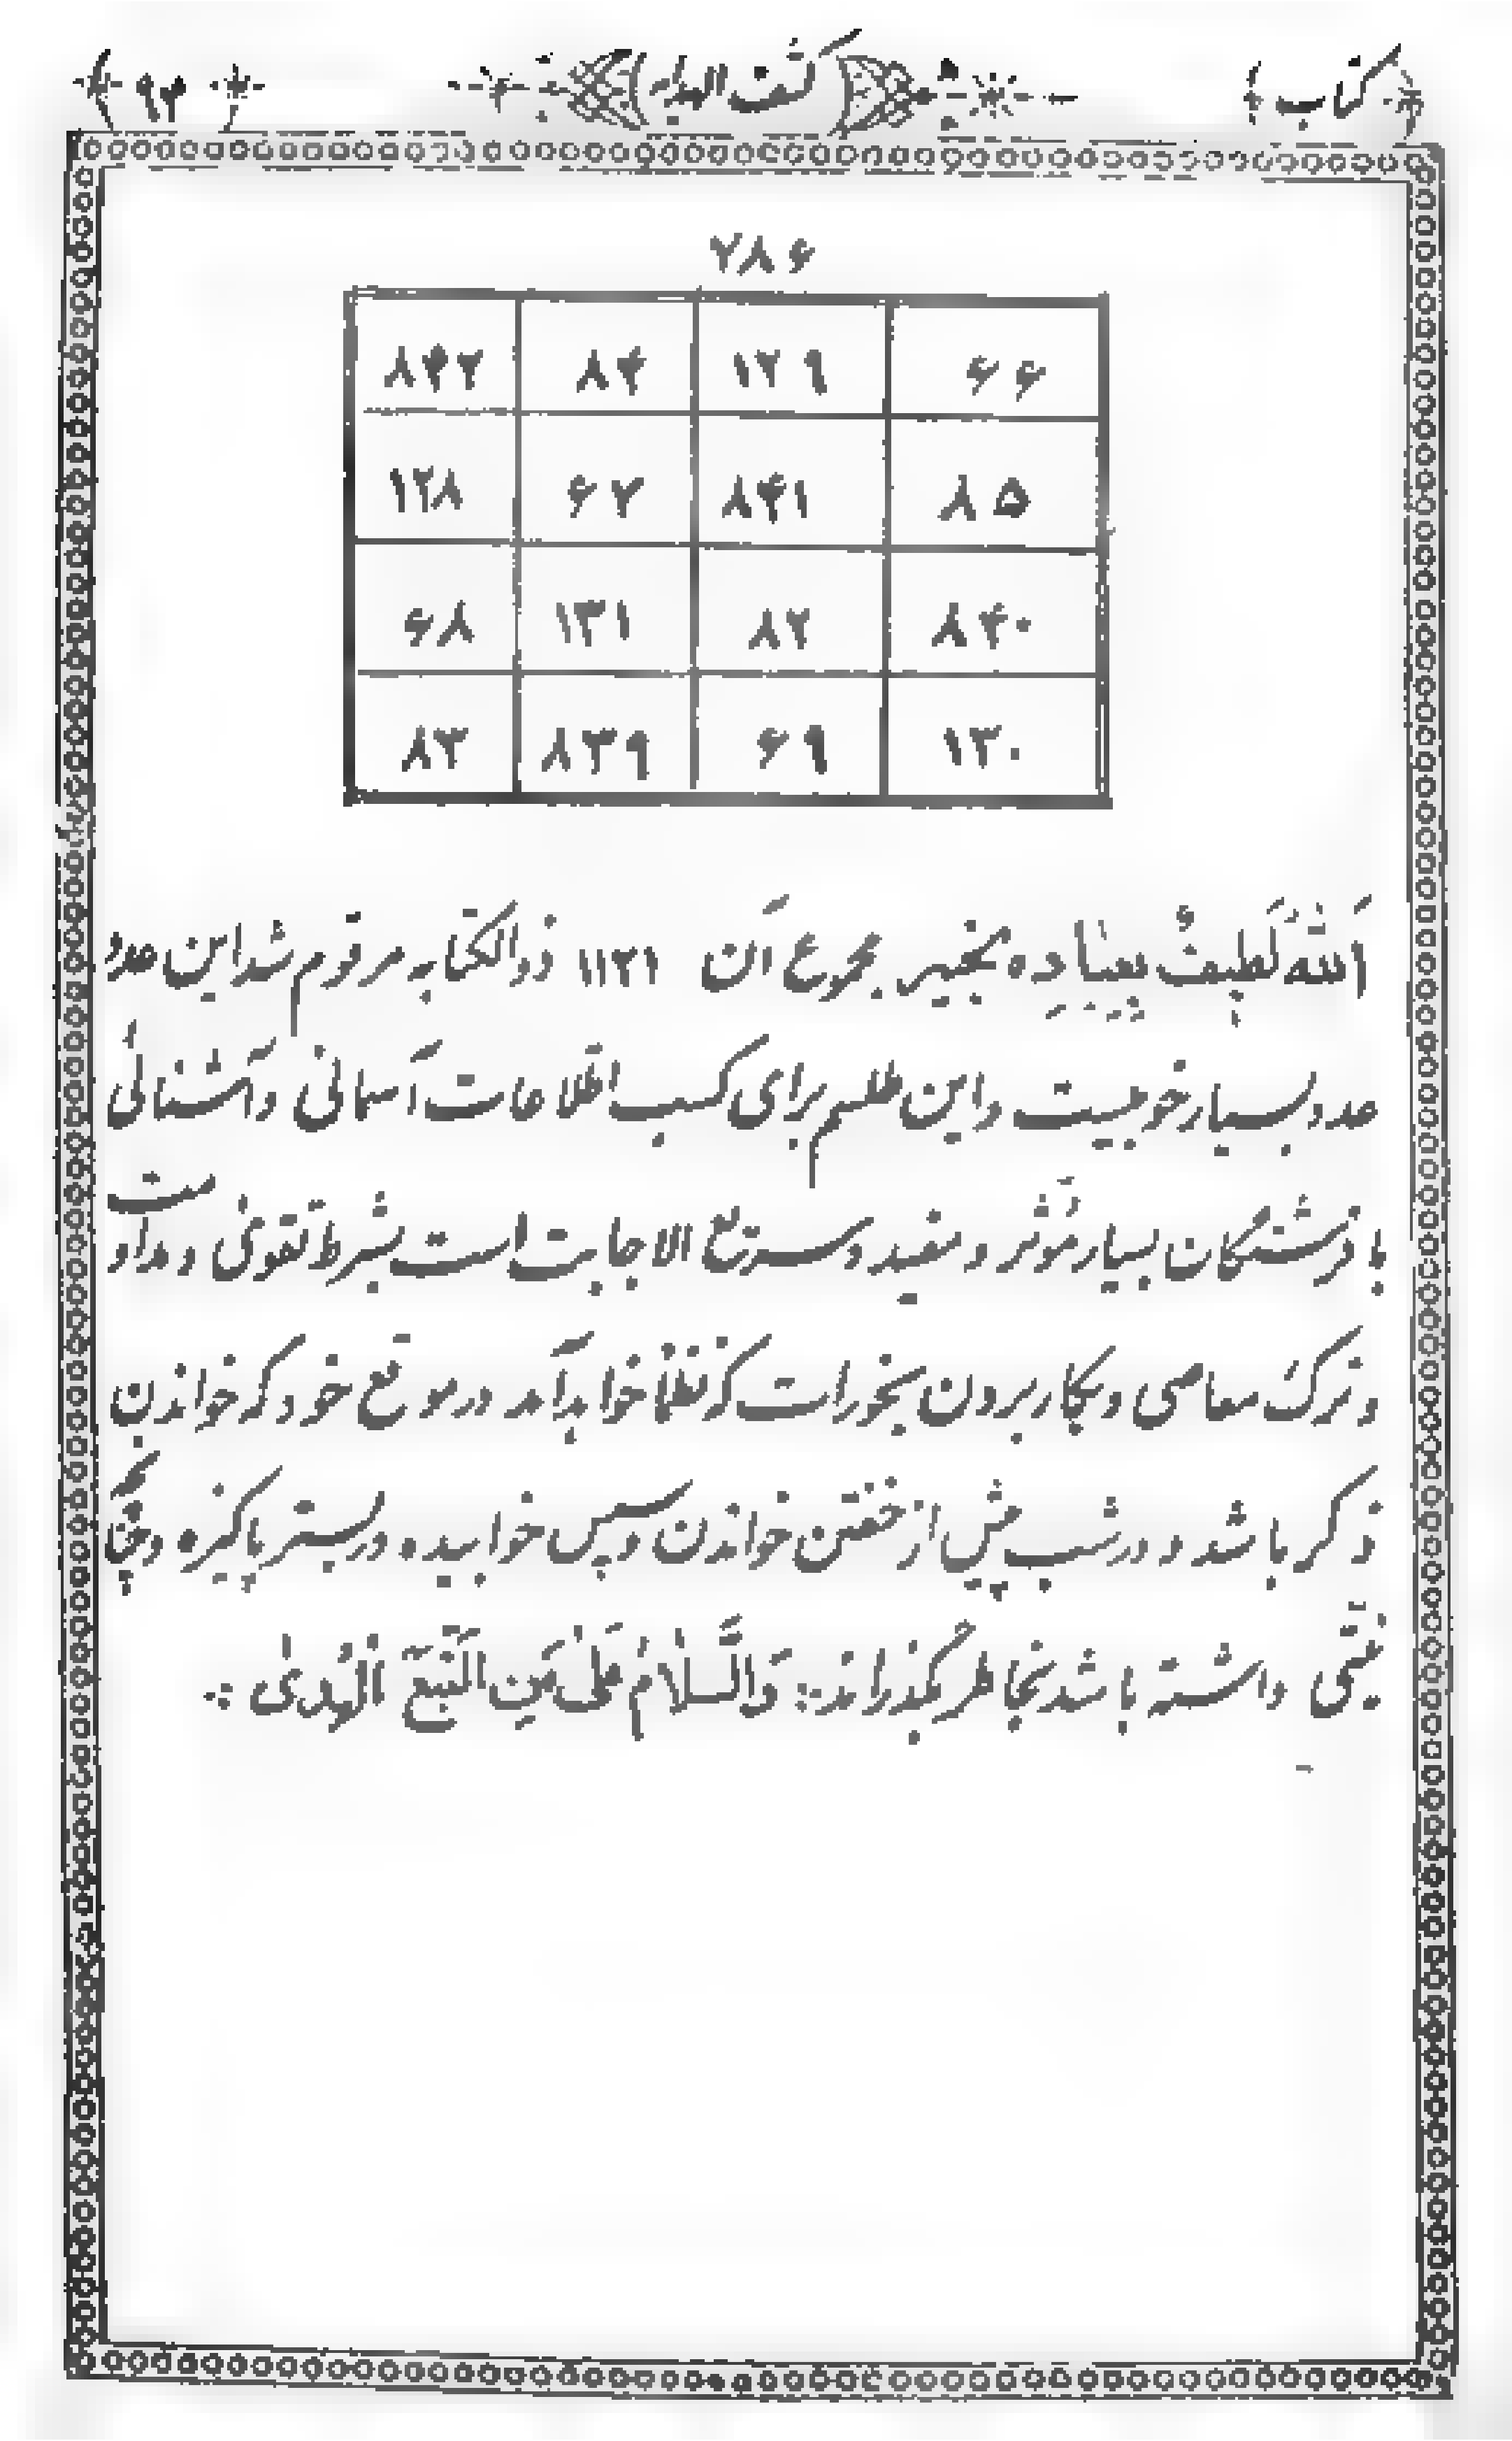 کتاب کشف الهدایه ۹۳
۷۸۶
۸۴۲ ۸۴ ۱۲۹ ۶۶
۱۲۸ ۶۷ ۸۴۱ ۸۵
۶۸ ۱۳۱ ۸۲ ۸۴۰
۸۳ ۸۳۹ ۶۹ ۱۳۰
اَللهُ لَطیفٌ بِعِبادِه بخیر مجموع آن ۱۱۲۱ ذوالکتابه مرقوم شد این عدد
عدد بسیار خوبیست و این طلسم برای کسب اطّلاعات آسمانی و آشنائی
با فرشتگان بسیار مُوثر و مفید و سریع الاجابت است بشرط تقوی و مداومت
و ترک معاصی و بکار بردن بخورات که نظماً خواهد آمد در موقع خود که خواندن
ذکر باشد و در شب پیش از خفتن خواندن و سپس خوابیده در بستر پاکیزه و چنانچه
نیّتی داشته باشد بخاطر بگذراند ∴ وَالسَّلامُ عَلیٰ مَنِ اتَّبَعَ الهُدیٰ ∴